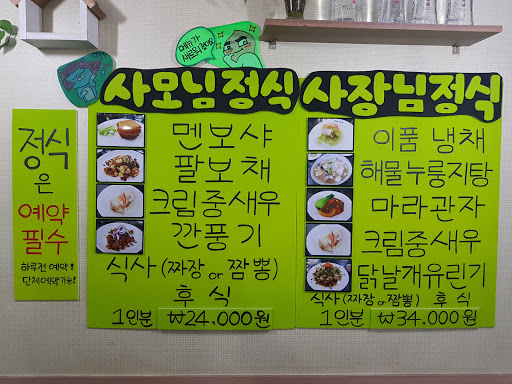 메뉴가
새로워졌어요
정식
은
예약
필수
하루전 예약!
단체예약가능!
사모님정식
멘보샤
팔보채
크림중새우
깐풍기
식사(짜장or짬뽕)
후식
1인분 ₩24.000원
사장님정식
이품 냉채
해물누룽지탕
마라관자
크림중새우
닭날개유린기
식사(짜장or짬뽕) 후식
1인분 ₩34.000원